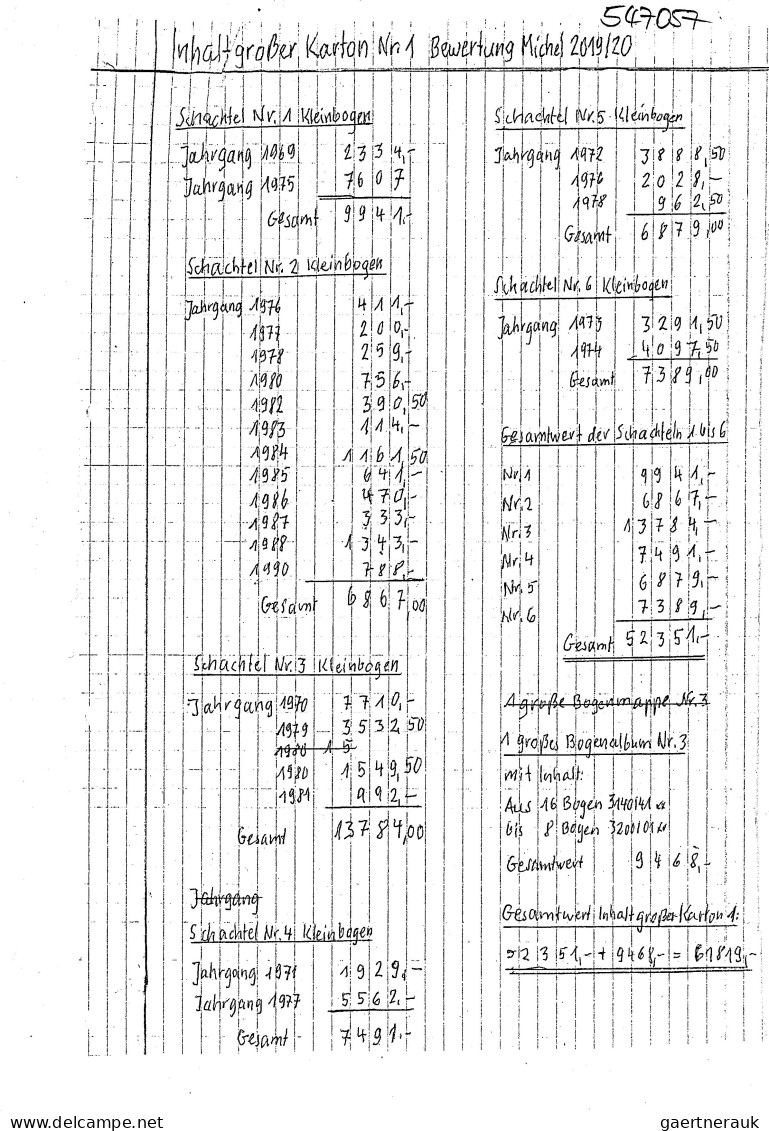 547057
Inhalt großer Karton Nr.1 Bewertung Michel 2019/20
Schachtel Nr. 1 Kleinbogen
Jahrgang 1969 2334,-
Jahrgang 1975 7607
Gesamt 9941,-
Schachtel Nr. 2 Kleinbogen
Jahrgang 1976 411,-
1977 200,-
1978 259,-
1980 756,-
1982 390,50
1983 114,-
1984 1161,50
1985 641,-
1986 470,-
1987 333,-
1988 1343,-
1990 788,-
Gesamt 6867,00
Schachtel Nr.3 Kleinbogen
Jahrgang 1970 7710,-
1979 3532,50
1980 15
1980 1549,50
1981 992,-
Gesamt 13784,00
Jahrgang
Schachtel Nr.4 Kleinbogen
Jahrgang 1971 1929,-
Jahrgang 1977 5562,-
Gesamt 7491,-
Schachtel Nr.5 Kleinbogen
Jahrgang 1972 3888,50
1976 2028,-
1978 962,50
Gesamt 6879,00
Schachtel Nr.6 Kleinbogen
Jahrgang 1973 3291,50
1974 4097,50
Gesamt 7389,00
Gesamtwert der Schachteln 1 bis 6
Nr.1 9941,-
Nr.2 6867,-
Nr.3 13784,-
Nr.4 7491,-
Nr.5 6879,-
Nr.6 7389,-
Gesamt 52351,-
1 große Bogenmappe Nr.3
1 großes Bogenalbum Nr.3
mit Inhalt:
Aus 16 Bogen 3140/41 **
bis 8 Bogen 3200/01 **
Gesamtwert 9468,-
Gesamtwert Inhalt großer Karton 1:
52351,- + 9468,- = 61819,-
www.delcampe.net
gaertnerauk